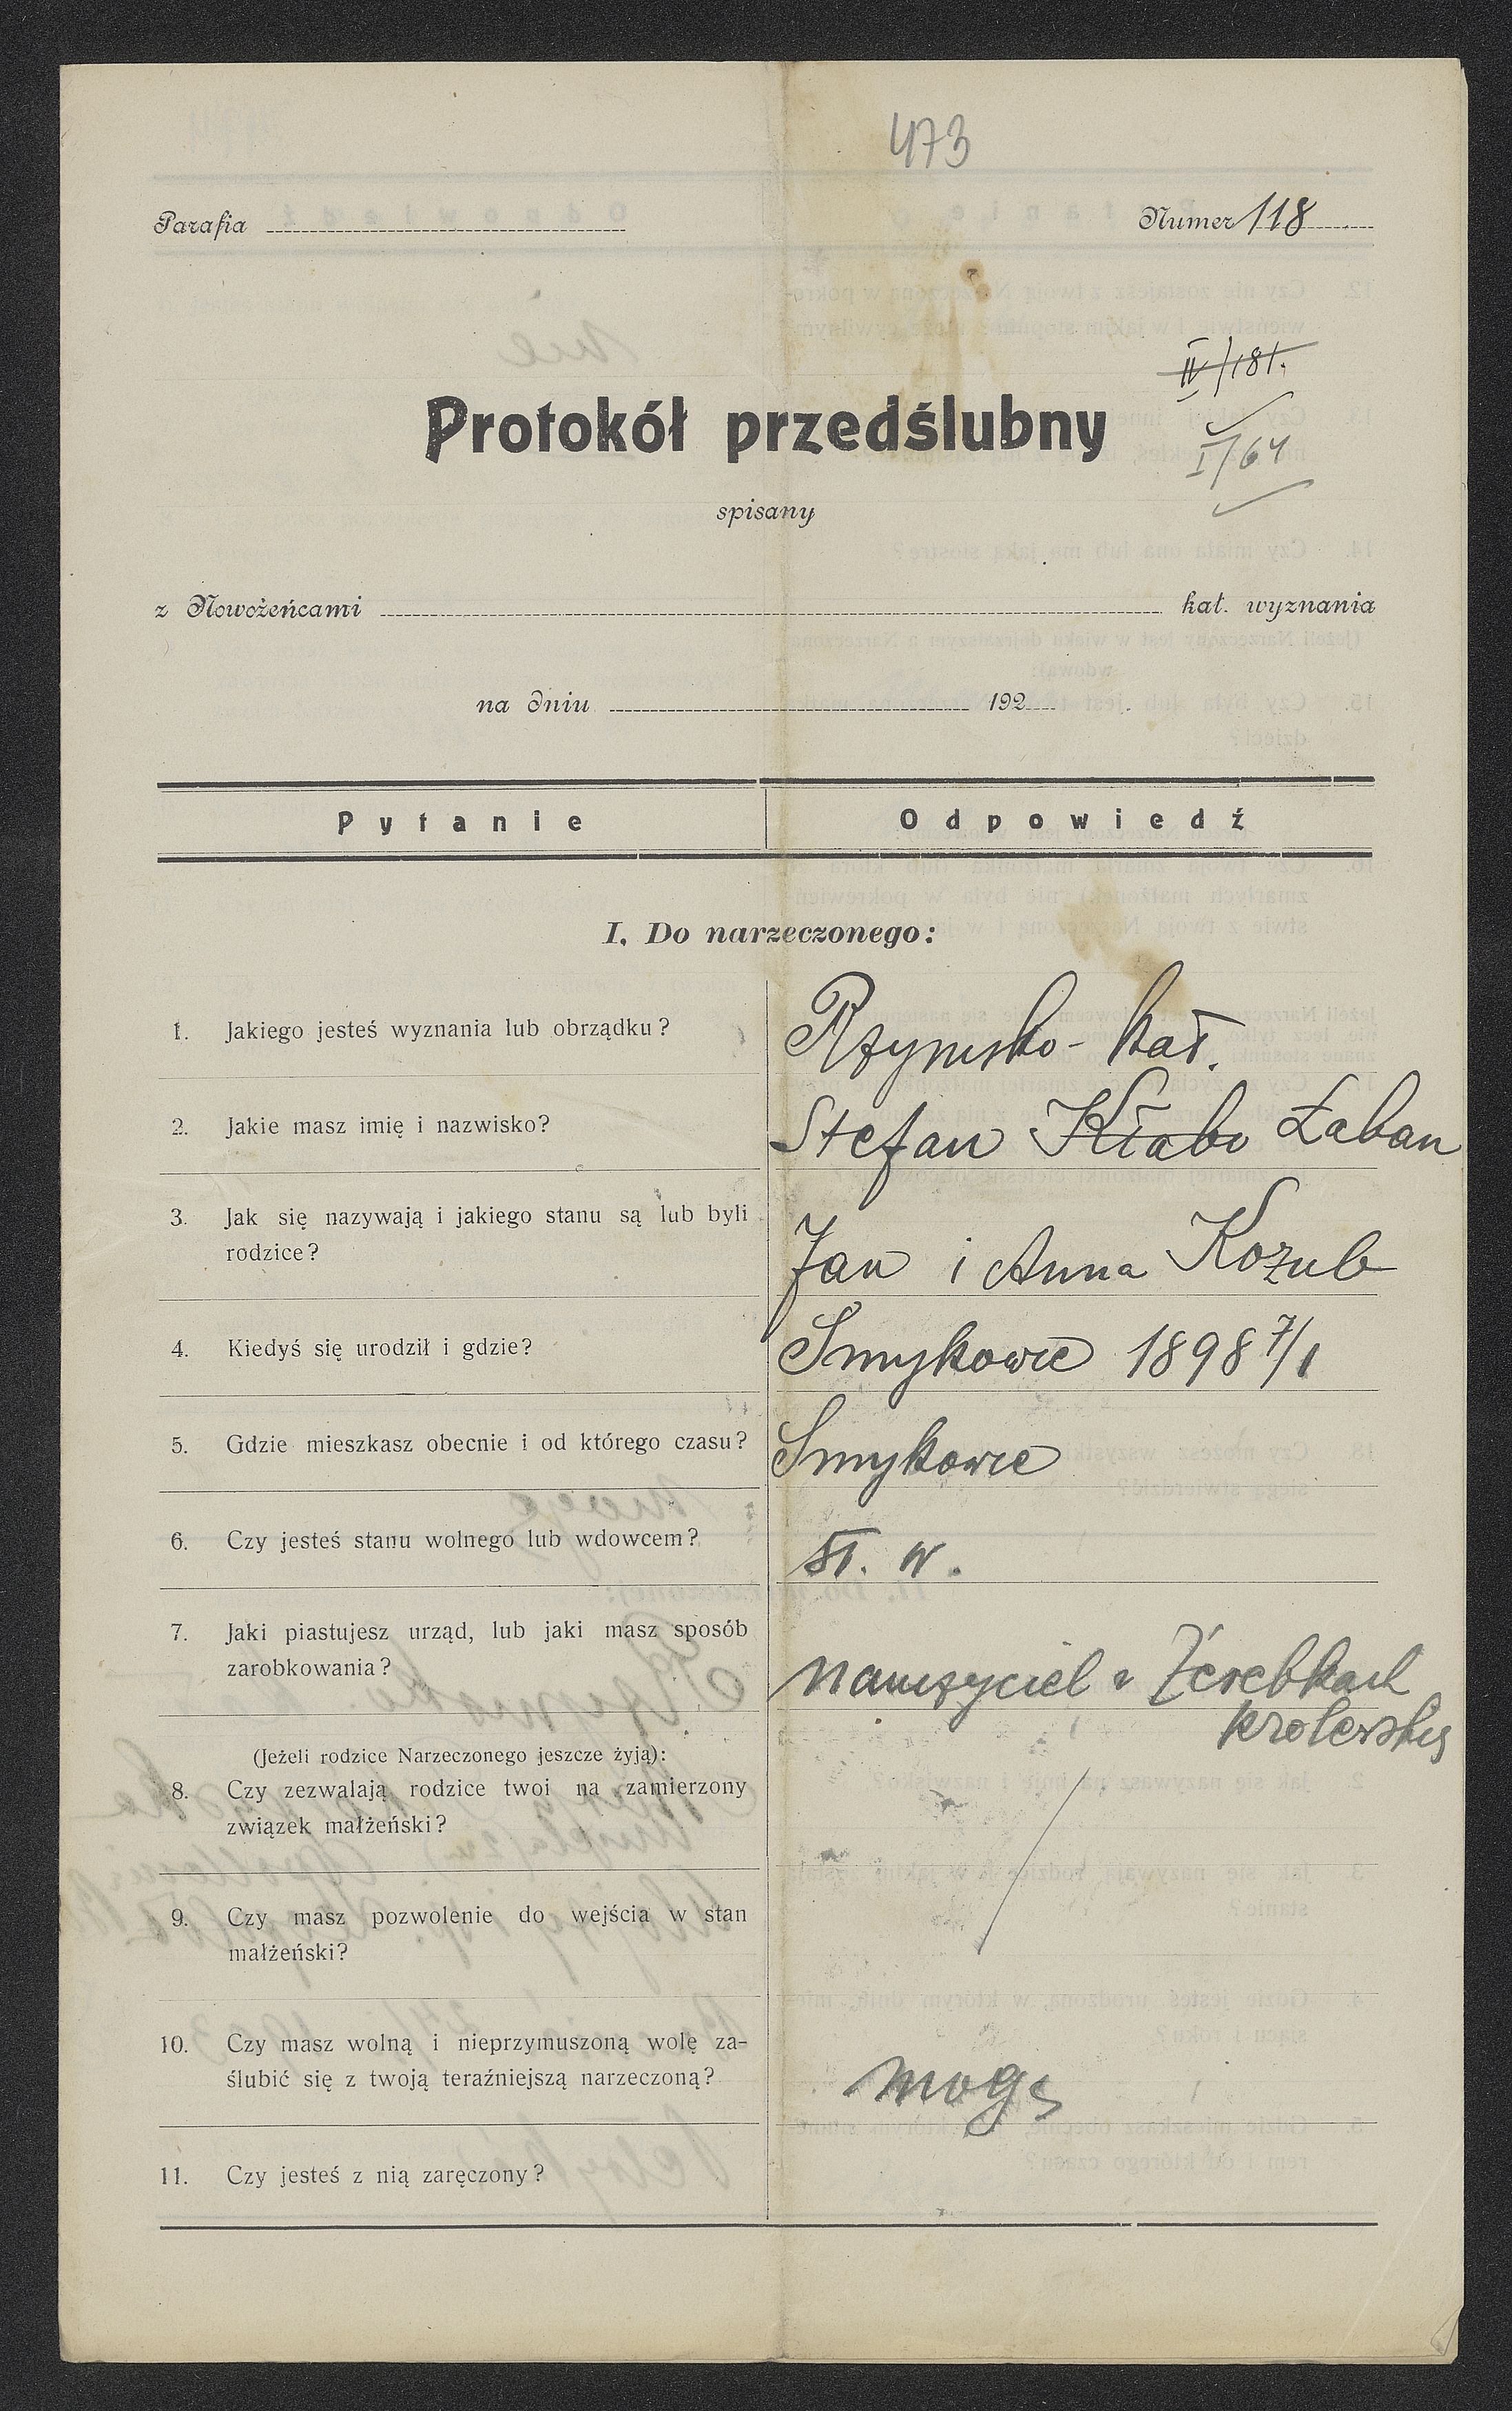 473
Parafia Numer 118
IV/181.
Protokół przedślubny
I/64
spisany
z Nowożeńcami kat. wyznania
na dniu 192
Pytanie Odpowiedź
I. Do narzeczonego:
1. Jakiego jesteś wyznania lub obrządku? Rzymsko-kat.
2. Jakie masz imię i nazwisko? Stefan Kłabo Łaban
3. Jak się nazywają i jakiego stanu są lub byli
rodzice? Jan i Anna Kozub
4. Kiedyś się urodził i gdzie? Smykowce 1898 7/1
5. Gdzie mieszkasz obecnie i od którego czasu? Smykowce
6. Czy jesteś stanu wolnego lub wdowcem? st. w.
7. Jaki piastujesz urząd, lub jaki masz sposób
zarobkowania? nauczyciel w Żerebkach
(Jeżeli rodzice Narzeczonego jeszcze żyją):
8. Czy zezwalają rodzice twoi na zamierzony
związek małżeński?
9. Czy masz pozwolenie do wejścia w stan
małżeński?
10. Czy masz wolną i nieprzymuszoną wolę za-
ślubić się z twoją teraźniejszą narzeczoną? mogę
11. Czy jesteś z nią zaręczony?